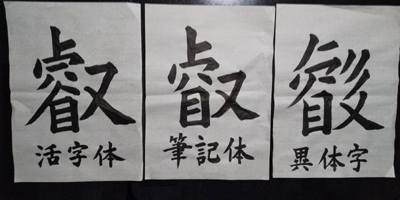 叡
活字体
叡
筆記体
異体字